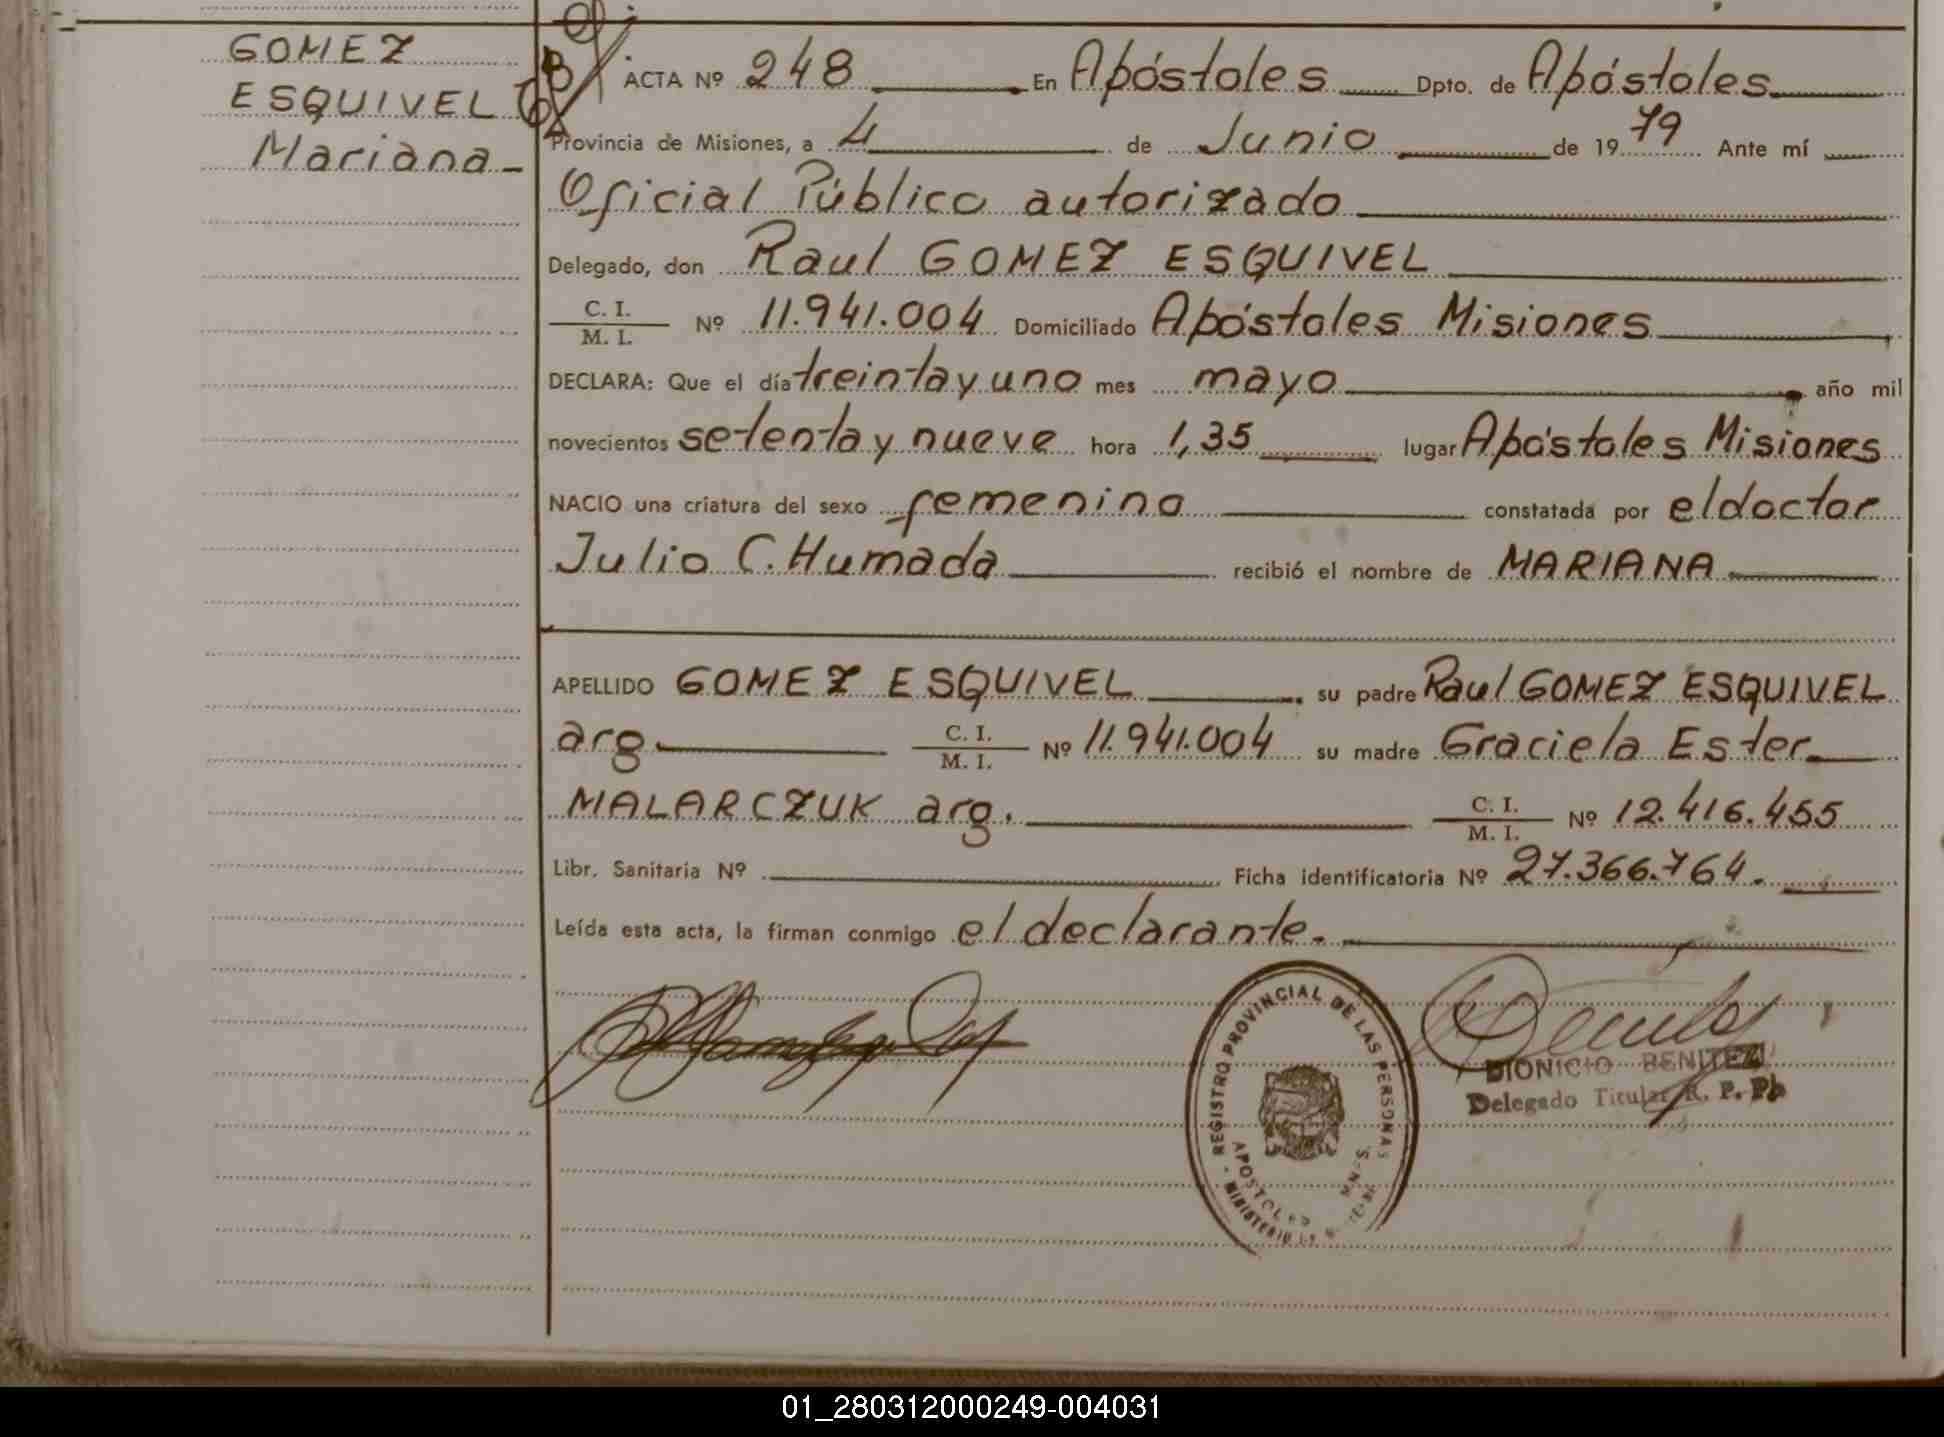 GOMEZ
ESQUIVEL
Mariana-
ACTA Nº 248 En Apóstoles Dpto. de Apóstoles
Provincia de Misiones, a 4 de Junio de 1979 Ante mí
Oficial Público autorizado
Delegado, don Raul GOMEZ ESQUIVEL
C. I. / M. I. Nº 11.941.004 Domiciliado Apóstoles Misiones
DECLARA: Que el día treinta y uno mes mayo año mil
novecientos setenta y nueve hora 1,35 lugar Apóstoles Misiones
NACIO una criatura del sexo femenino constatada por el doctor
Julio C. Humada recibió el nombre de MARIANA
APELLIDO GOMEZ ESQUIVEL su padre Raul GOMEZ ESQUIVEL
arg. C. I. / M. I. Nº 11.941.004 su madre Graciela Ester
MALARCZUK arg. C. I. / M. I. Nº 12.416.455
Libr. Sanitaria Nº Ficha identificatoria Nº 27.366.764.
Leída esta acta, la firman conmigo el declarante.
REGISTRO PROVINCIAL DE LAS PERSONAS
APOSTOLES MNES.
MINISTERIO
DIONICIO BENITEZ
Delegado Titular R. P. Ps
01_280312000249-004031